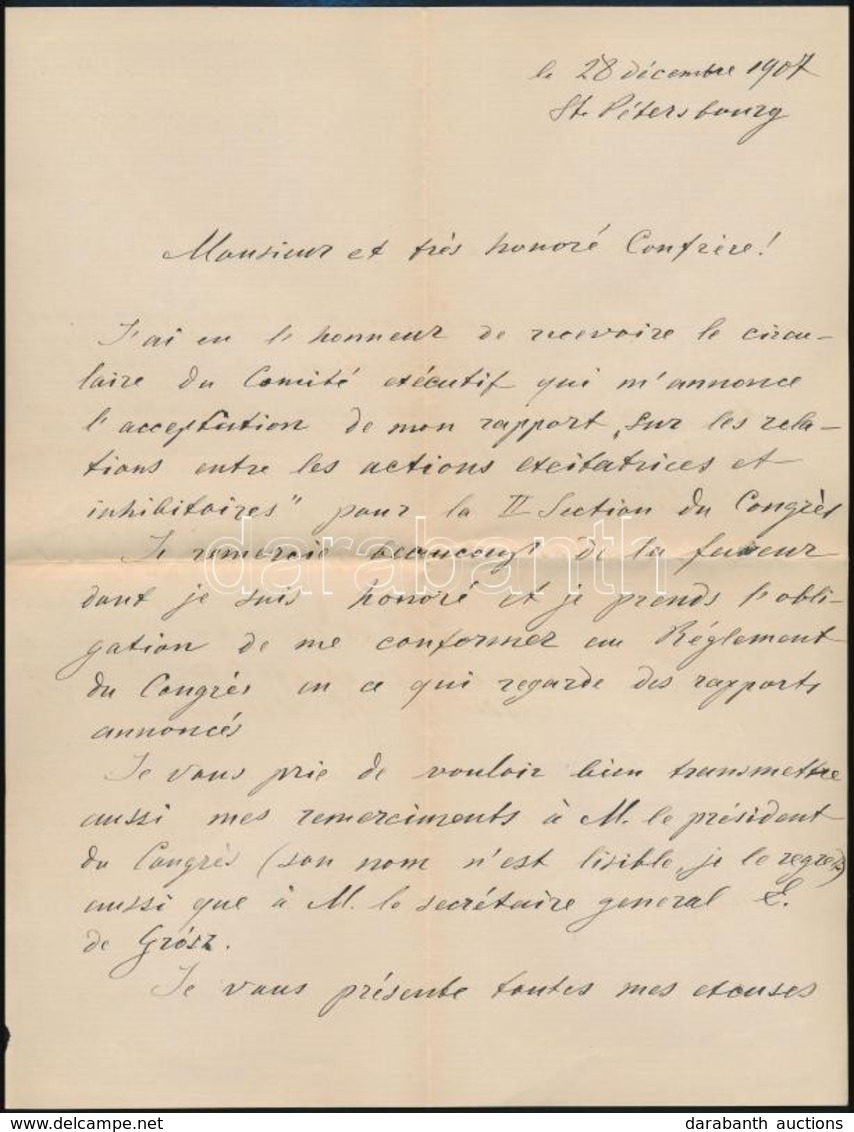 le 28 décembre 1907
St. Pétersbourg
Monsieur et très honoré Confrère!
J'ai eu l'honneur de recevoire le circu-
laire du Comité exécutif qui m'annonce
l'acceptation de mon rapport „sur les rela-
tions entre les actions excitatrices et
inhibitoires" pour la II Section du Congrès
Je remercie beaucoup de la faveur
dont je suis honoré et je prends l'obli-
gation de me conformer au Réglement
du Congrès en ce qui regarde des rapports
annoncés
Je vous prie de vouloir bien transmettre
aussi mes remerciments à M. le président
du Congrès (son nom n'est lisible, je le regrets)
aussi que à M. le secrétaire general E.
de Grósz.
Je vous présente toutes mes excuses
darabanth
www.delcampe.net
darabanth auctions